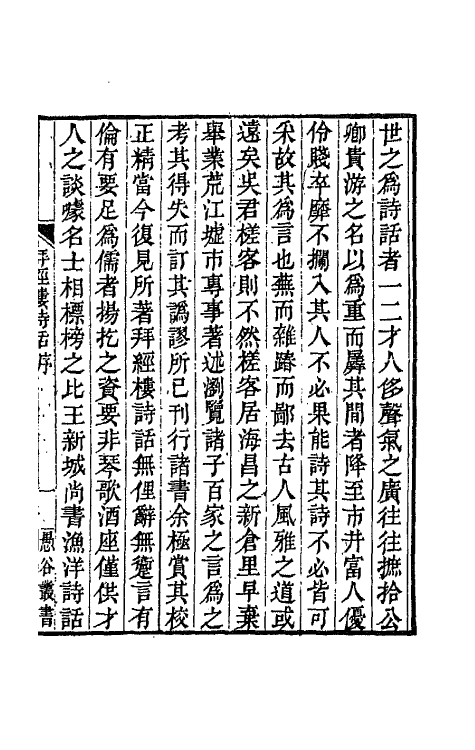 世之爲詩話者一二才人侈聲氣之廣往往摭拾公
卿貴游之名以爲重而羼其間者降至市井富人優
伶賤卒靡不攔入其人不必果能詩其詩不必皆可
采故其爲言也蕪而雜蹐而鄙去古人風雅之道或
遠矣吳君槎客則不然槎客居海昌之新倉里早棄
舉業荒江墟市專事著述瀏覽諸子百家之言爲之
考其得失而訂其譌謬所已刊行諸書余極賞其校
正精當今復見所著拜經樓詩話無俚辭無躗言有
倫有要足爲儒者揚扢之資要非琴歌酒座僅供才
人之談噱名士相標榜之比王新城尚書漁洋詩話
拜經樓詩話序
愚谷叢書